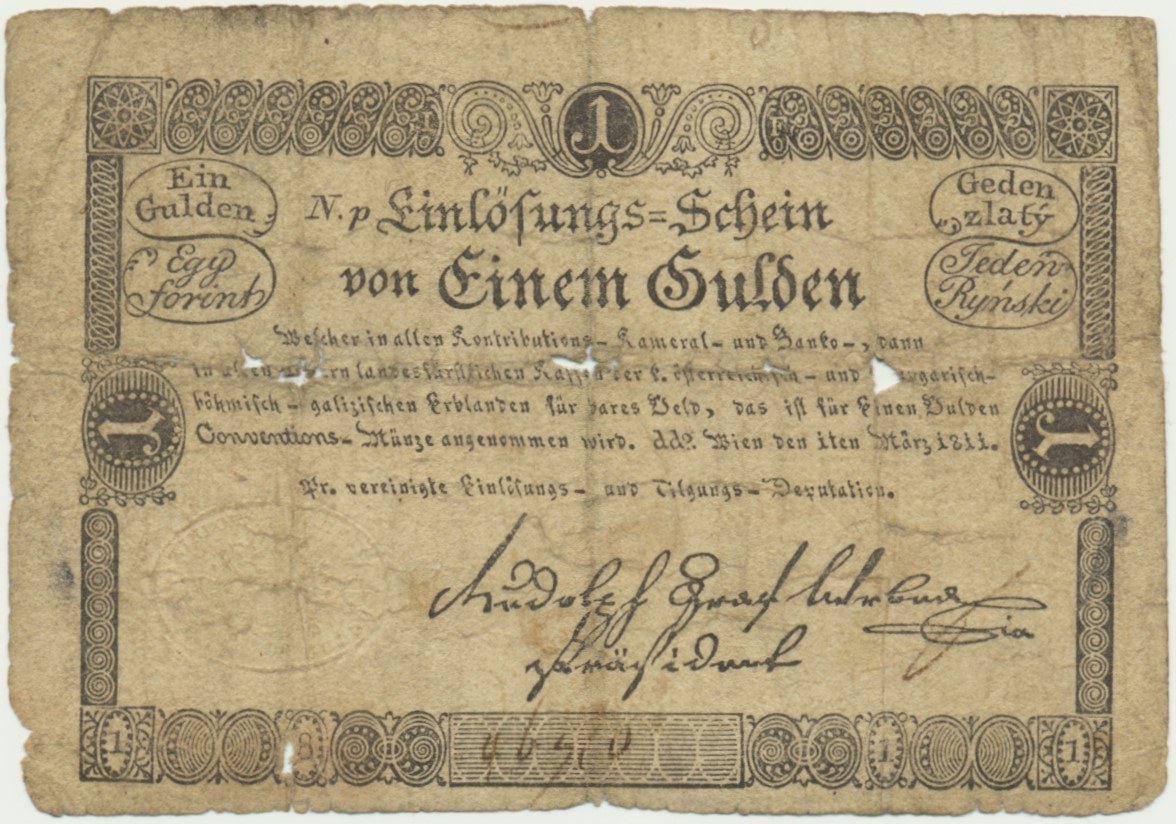 1
Ein
Gulden
Egy
forint
Geden
zlatý
Jeden
Ryński
N. p Einlösungs=Schein
von Einem Gulden
Welcher in allen Kontributions-Kameral- und Banko-, dann
in landesfürstlichen Kassen der k. österreichisch- und
böhmisch-galizischen Erblanden für bares Geld, das ist für Einen Gulden
Conventions-Münze angenommen wird. ddo. Wien den 1ten März 1811.
1
1
Pr. vereinigte Einlösungs- und Tilgungs-Deputation.
Rudolph Graf Wrbna
Präsident
1
8
1
1